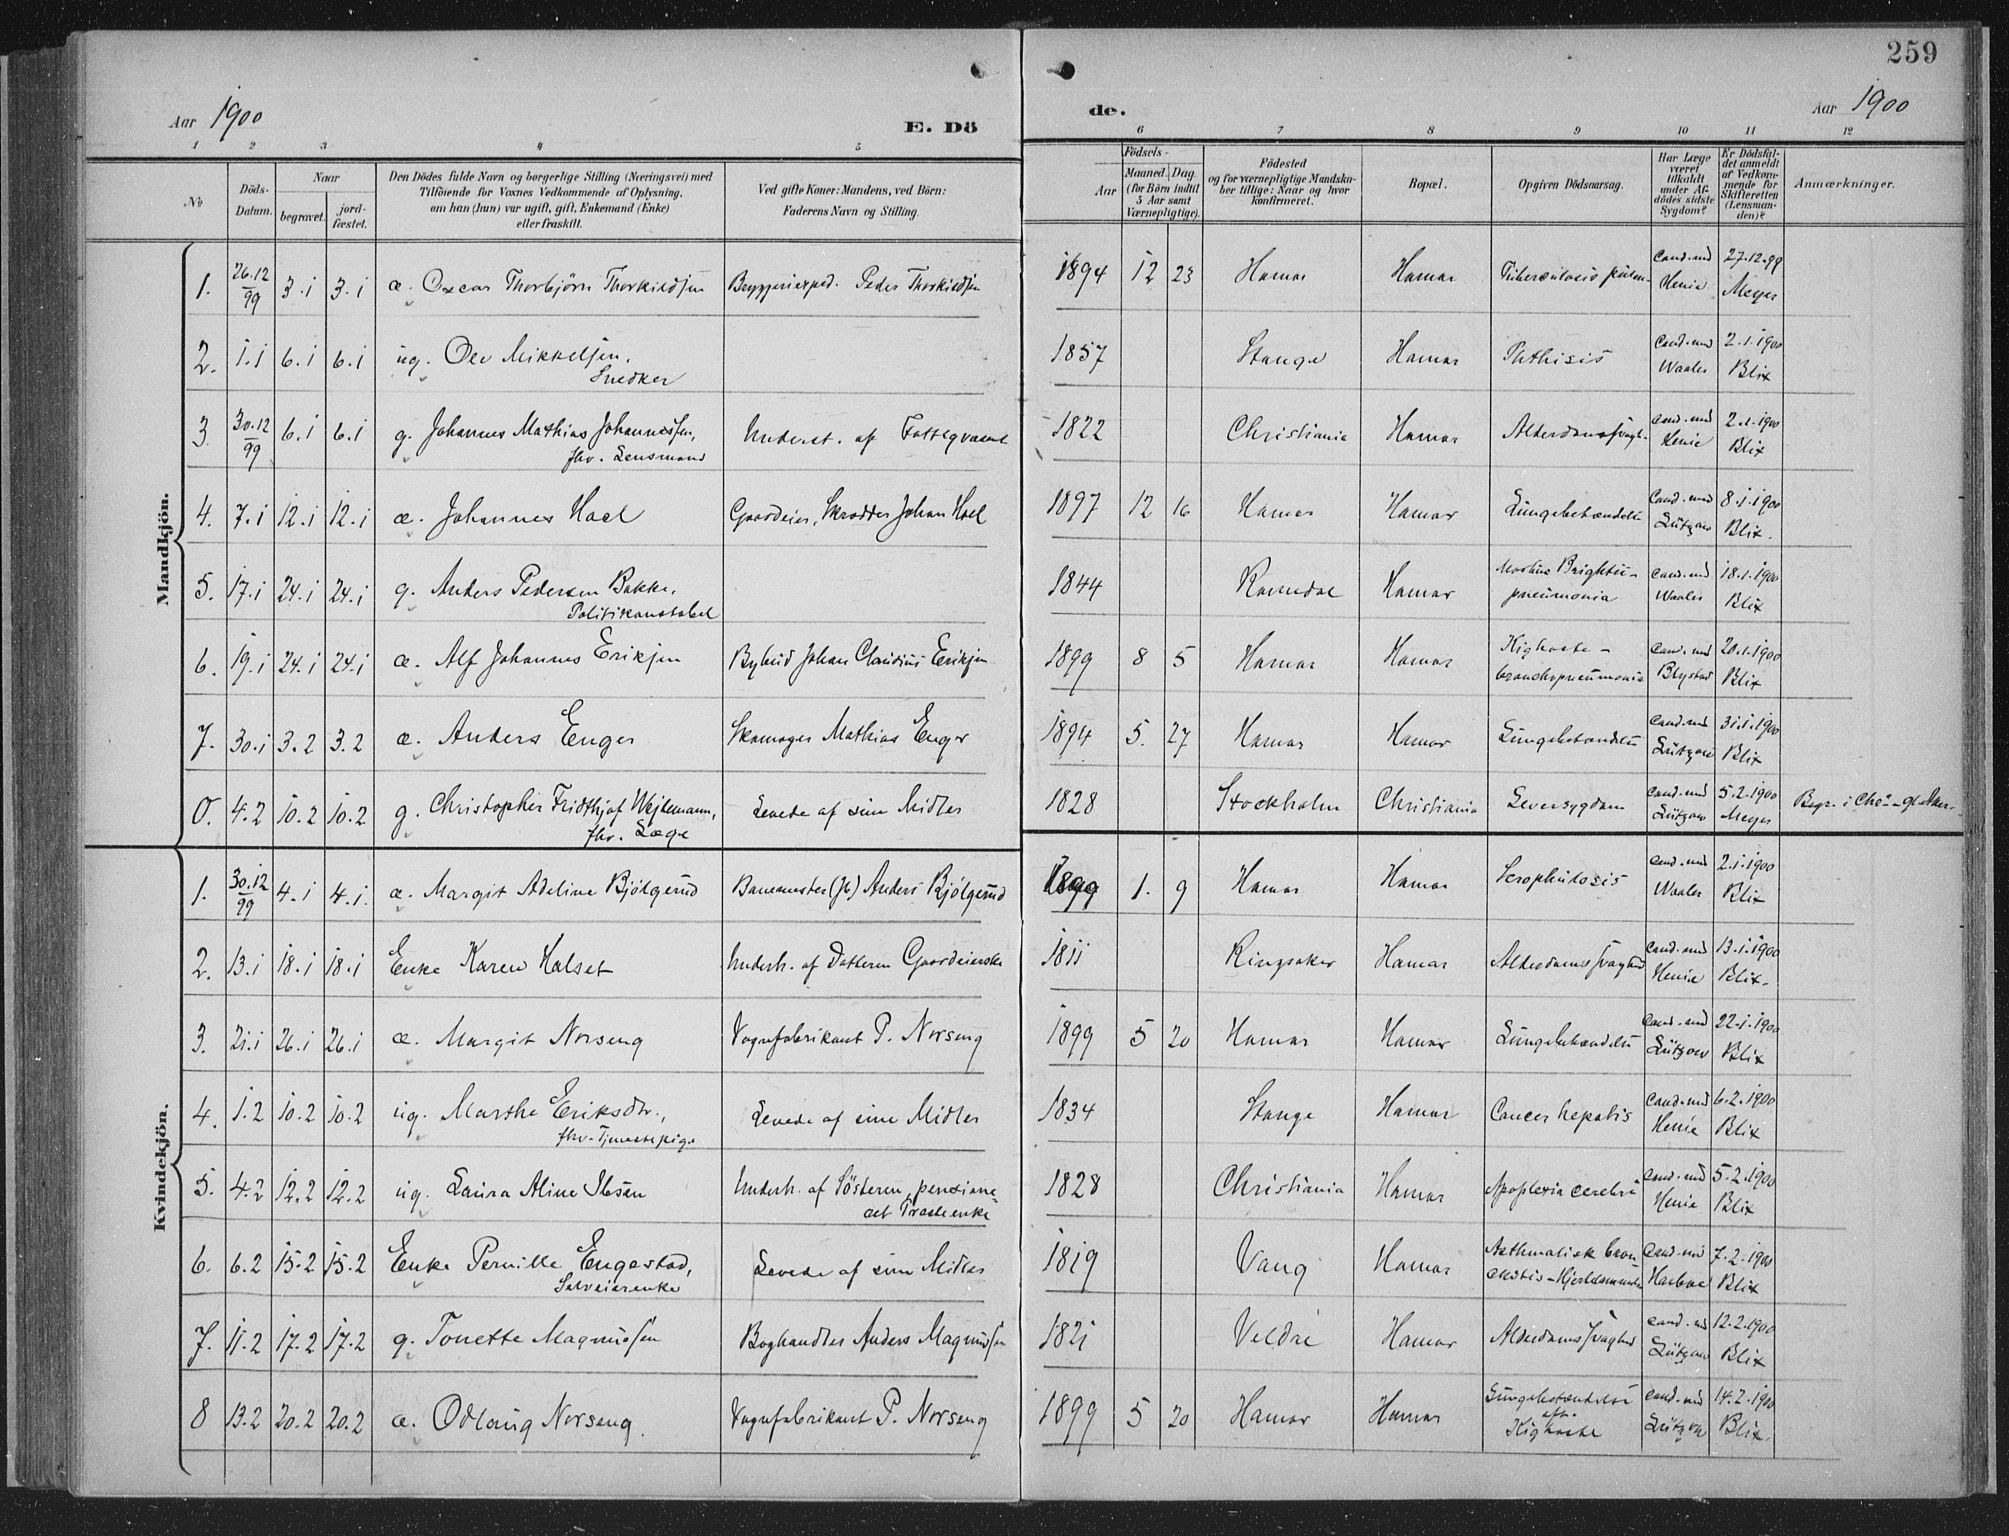 259
Aar 1900
E. Dö
de.
Aar 1900
1 2 3 4 5 6 7 8 9 10 11 12
№
Döds-
Datum.
Naar
begravet.
jord-
fæstet.
Den Dödes fulde Navn og borgerlige Stilling (Næringsvei) med
Tilföiende for Voxnes Vedkommende af Oplysning,
om han (hun) var ugift, gift, Enkemand (Enke)
eller fraskilt.
Ved gifte Koner: Mandens, ved Börn:
Faderens Navn og Stilling.
Födsels-
Aar
Maaned. Dag
(for Börn indtil
5 Aar samt
Værnepligtige).
Födested
og for værnepligtige Mandska-
ber tillige: Naar og hvor
konfirmeret.
Bopæl.
Opgiven Dödsaarsag.
Har Læge
været
tilkaldt
under Af-
dödes sidste
Sygdom?
Er Dödsfal-
det anmeldt
af Vedkom-
mende for
Skifteretten
(Lensman-
den)?
Anmærkninger.
Mandkjön.
1. 26.12/99 3.1 3.1 æ. Oscar Thorbjörn Thorkildsen Bryggeriexped. Peder Thorkildsen 1894 12 23 Hamar Hamar Tuberculosis pulm. Cand. med Henie 27.12.99 Meyer
2. 1.1 6.1 6.1 ug. Ole Mikkelsen, Snedker 1857 Stange Hamar Phthisis Cand. med Waaler 2.1.1900 Blix
3. 30.12/99 6.1 6.1 g. Johannes Mathias Johannessen, fhv. Lensmand Underst. af Fattigvæsenet 1822 Christiania Hamar Alderdomssvagh. Cand. med Henie 2.1.1900 Blix
4. 7.1 12.1 12.1 æ. Johannes Hoel Gaardeier, Skrædder Johan Hoel 1897 12 16 Hamar Hamar Lungebetændelse Cand. med Lützow 8.1.1900 Blix.
5. 17.1 24.1 24.1 g. Anders Pedersen Bakke, Politikonstabel 1844 Romsdal Hamar Morbus Brightii - pneumonia Cand. med Waaler 18.1.1900 Blix
6. 19.1 24.1 24.1 æ. Alf Johannes Eriksen Bybud Johan Claudius Eriksen 1899 8 5 Hamar Hamar Kighoste - bronchopneumonia Cand. med Blystad 20.1.1900 Blix
7. 30.1 3.2 3.2 æ. Anders Enger Skomager Mathias Enger 1894 5. 27 Hamar Hamar Lungebetændelse Cand. med Lützow 31.1.1900 Blix
0. 4.2 10.2 10.2 g. Christopher Fridthjof fhv. Læge Levede af sine Midler 1828 Stockholm Christiania Leversygdom Cand. med Lützow 5.2.1900 Meyer Begr. i Chra - gl. Aker.
Kvindekjön.
1. 30.12/99 4.1 4.1. æ. Margit Adeline Bjölgerud Banemester Anders Bjölgerud 1899 1. 9 Hamar Hamar Scrophulosis Cand. med Waaler 2.1.1900 Blix
2. 13.1 18.1 18.1 Enke Karen Halset Underh. af Datteren Gaardeierske 1811 Ringsaker Hamar Alderdomssvaghed Cand. med Henie 13.1.1900 Blix.
3. 21.1 26.1 26.1 æ. Margit Norseng Vognfabrikant P. Norseng 1899 5 20 Hamar Hamar Lungebetændelse Cand. med Lützow 22.1.1900 Blix
4. 1.2 10.2 10.2 ug. Marthe Eriksdtr., fhv. Tjenestepige Levede af sine Midler 1834 Stange Hamar Cancer hepatis Cand. med Henie 6.2.1900 Blix
5. 4.2 12.2 12.2 ug. Laura Aline Ibsen Underh. af Søsteren, pensione- Presteenke 1828 Christiania Hamar Apoplexia cerebri Cand. med Henie 5.2.1900 Blix
6. 6.2 15.2 15.2 Enke Pernille Engestad, Selveierenke Levede af sine Midler 1819 Vang Hamar Asthmatisk Cand. med 7.2.1900 Blix
7. 11.2 17.2 17.2 g. Tonette Magnussen Boghandler Anders Magnussen 1821 Veldre Hamar Alderdomssvaghed Cand. med Lützow 12.2.1900 Blix
8 13.2 20.2 20.2 æ. Odlaug Norseng. Vognfabrikant P. Norseng 1899 5 20 Hamar Hamar Lungebetændelse eft. Kighoste Cand. med Lützow 14.2.1900 Blix.